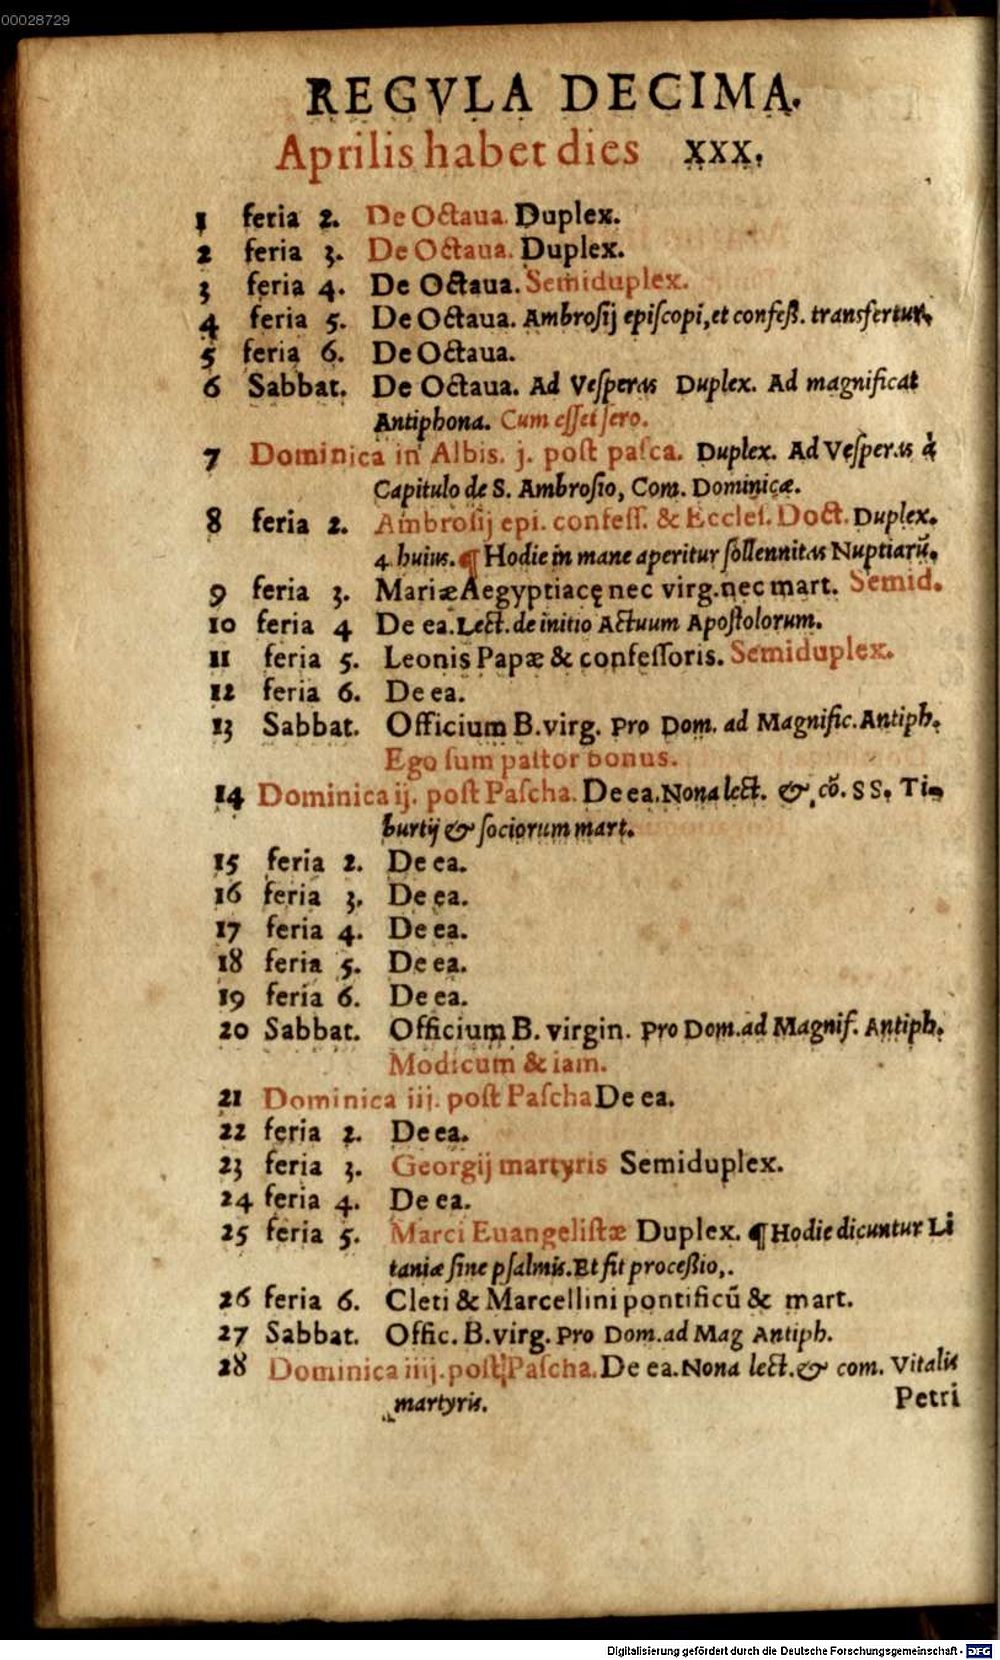 00028729
REGVLA DECIMA.
Aprilis habet dies XXX.
1 feria 2. De Octaua. Duplex.
2 feria 3. De Octaua. Duplex.
3 feria 4. De Octaua. Semiduplex.
4 feria 5. De Octaua. Ambroſij epiſcopi, et confeſſ. transfertur.
5 feria 6. De Octaua.
6 Sabbat. De Octaua. Ad Veſperas Duplex. Ad magnificat
Antiphona. Cum eſſet ſero.
7 Dominica in Albis. j. poſt paſca. Duplex. Ad Veſperas à
Capitulo de S. Ambroſio, Com. Dominicæ.
8 feria 2. Ambroſij epi. confeſſ. & Eccleſ. Doct. Duplex.
4 huius. ¶ Hodie in mane aperitur ſollennitas Nuptiarū.
9 feria 3. Mariæ Aegyptiacę nec virg. nec mart. Semid.
10 feria 4 De ea. Lect. de initio Actuum Apoſtolorum.
11 feria 5. Leonis Papæ & confeſſoris. Semiduplex.
12 feria 6. De ea.
13 Sabbat. Officium B. virg. Pro Dom. ad Magnific. Antiph.
Ego ſum paſtor bonus.
14 Dominica ij. poſt Paſcha. De ea. Nona lect. & cō. SS. Ti-
burtij & ſociorum mart.
15 feria 2. De ea.
16 feria 3. De ea.
17 feria 4. De ea.
18 feria 5. De ea.
19 feria 6. De ea.
20 Sabbat. Officium B. virgin. Pro Dom. ad Magnif. Antiph.
Modicum & iam.
21 Dominica iij. poſt Paſcha De ea.
22 feria 2. De ea.
23 feria 3. Georgij martyris Semiduplex.
24 feria 4. De ea.
25 feria 5. Marci Euangeliſtæ Duplex. ¶ Hodie dicuntur Li
taniæ ſine pſalmis. Et fit proceſſio,.
26 feria 6. Cleti & Marcellini pontificū & mart.
27 Sabbat. Offic. B. virg. Pro Dom. ad Mag Antiph.
28 Dominica iiij. poſt Paſcha. De ea. Nona lect. & com. Vitalis
martyris.
Petri
Digitalisierung gefördert durch die Deutsche Forschungsgemeinschaft - DFG